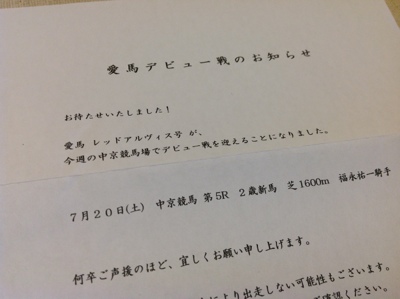 愛馬デビュー戦のお知らせ
お待たせいたしました！
愛馬 レッドアルヴィス号 が、
今週の中京競馬場でデビュー戦を迎えることになりました。
7月20日(土) 中京競馬 第5R 2歳新馬 芝1600m 福永祐一騎手
何卒ご声援のほど、宜しくお願い申し上げます。
により出走しない可能性もございます。
ご確認ください。